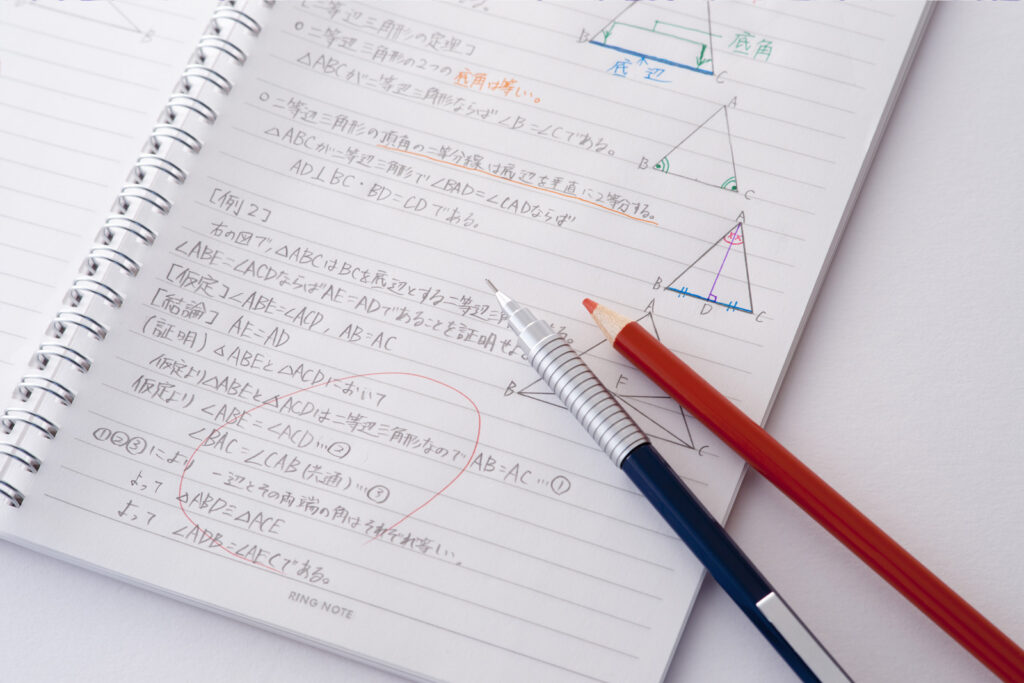 [二等辺三角形の定理]
○二等辺三角形の2つの底角は等しい。
△ABCが二等辺三角形ならば∠B=∠Cである。
○二等辺三角形の頂角の二等分線は底辺を垂直に2等分する。
△ABCが二等辺三角形で∠BAD=∠CADならば
AD⊥BC・BD=CDである。
[例2]
右の図で,△ABCはBCを底辺とする二等辺三 る。
∠ABE=∠ACDならばAE=ADであることを証明せよ。
[仮定]∠ABE=∠ACD, AB=AC
[結論] AE=AD
(証明)△ABEと△ACDにおいて
仮定より△ABEと△ACDは二等辺三角形なので AB=AC…①
仮定より ∠ABE=∠ACD…②
∠BAC=∠CAB(共通)…③
①②③により 一辺とその両端の角はそれぞれ等しい。
よって △ABD≡△ACE
よって ∠ADB=∠AECである。
RING NOTE
B
B
底辺
C
底角
A
B
C
A
B
D
C
A
B
F
C